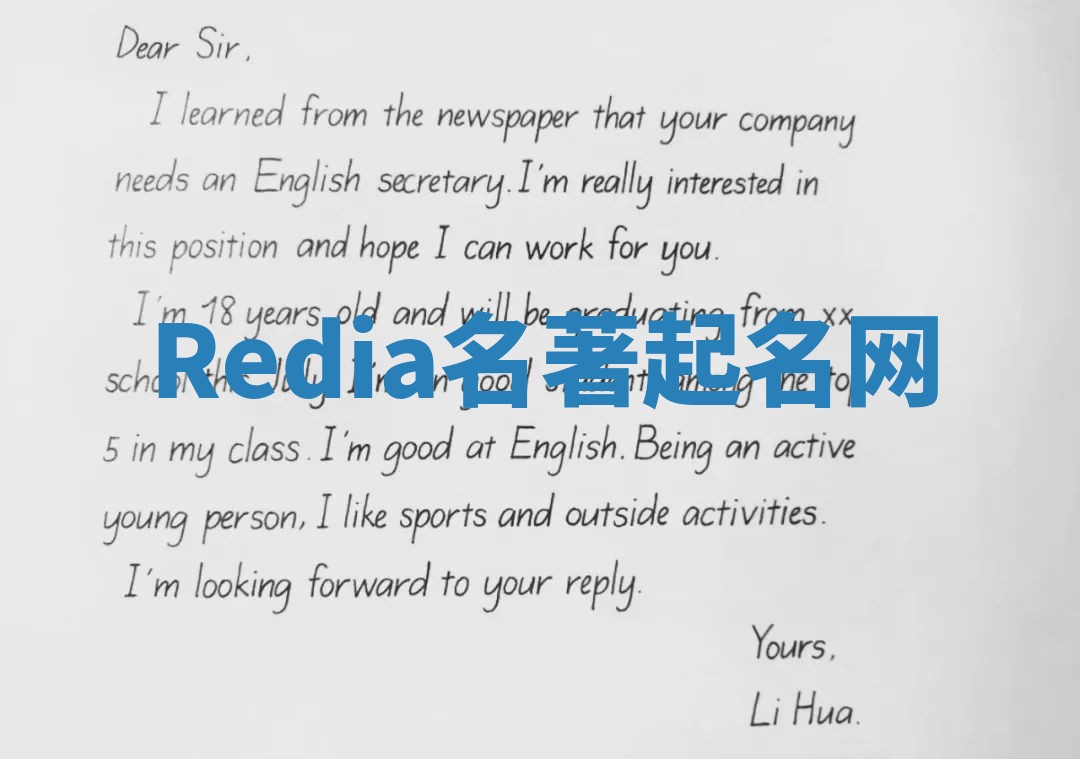 Dear Sir,
I learned from the newspaper that your company
needs an English secretary. I'm really interested in
this position and hope I can work for you.
I'm 18 years old and will be graduating from xx
Redia名著起名网
school this July. I'm good student among the top
5 in my class. I'm good at English. Being an active
young person, I like sports and outside activities.
I'm looking forward to your reply.
Yours,
Li Hua.